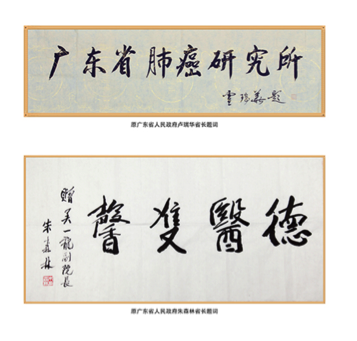 广东省肺癌研究所
卢瑞华题
原广东省人民政府卢瑞华省长题词
德醫雙馨
赠吴一龍副院長
朱森林
原广东省人民政府朱森林省长题词